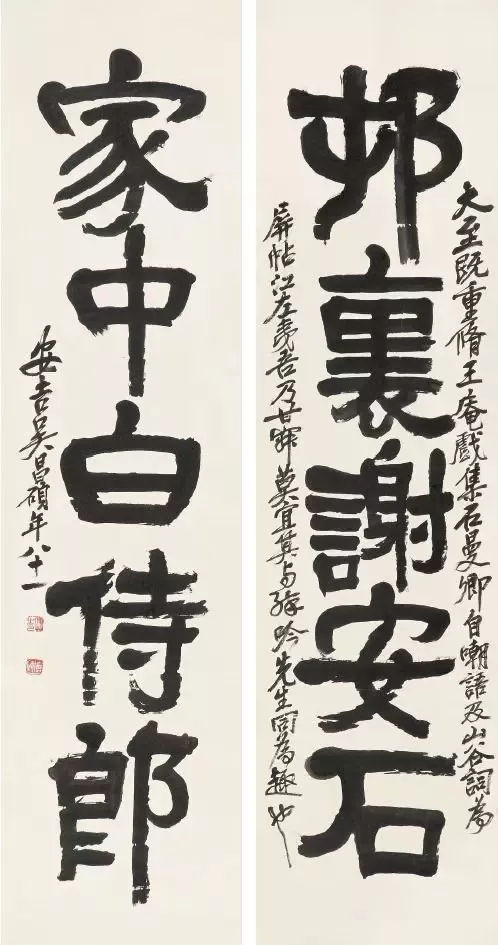 大至既重脩王庵戲集石曼卿自嘲語及山谷詞為
邨裏謝安石
屏帖江左夷吾乃莫宜吟先生同為趣也
家中白侍郎
安吉吴昌碩年八十一